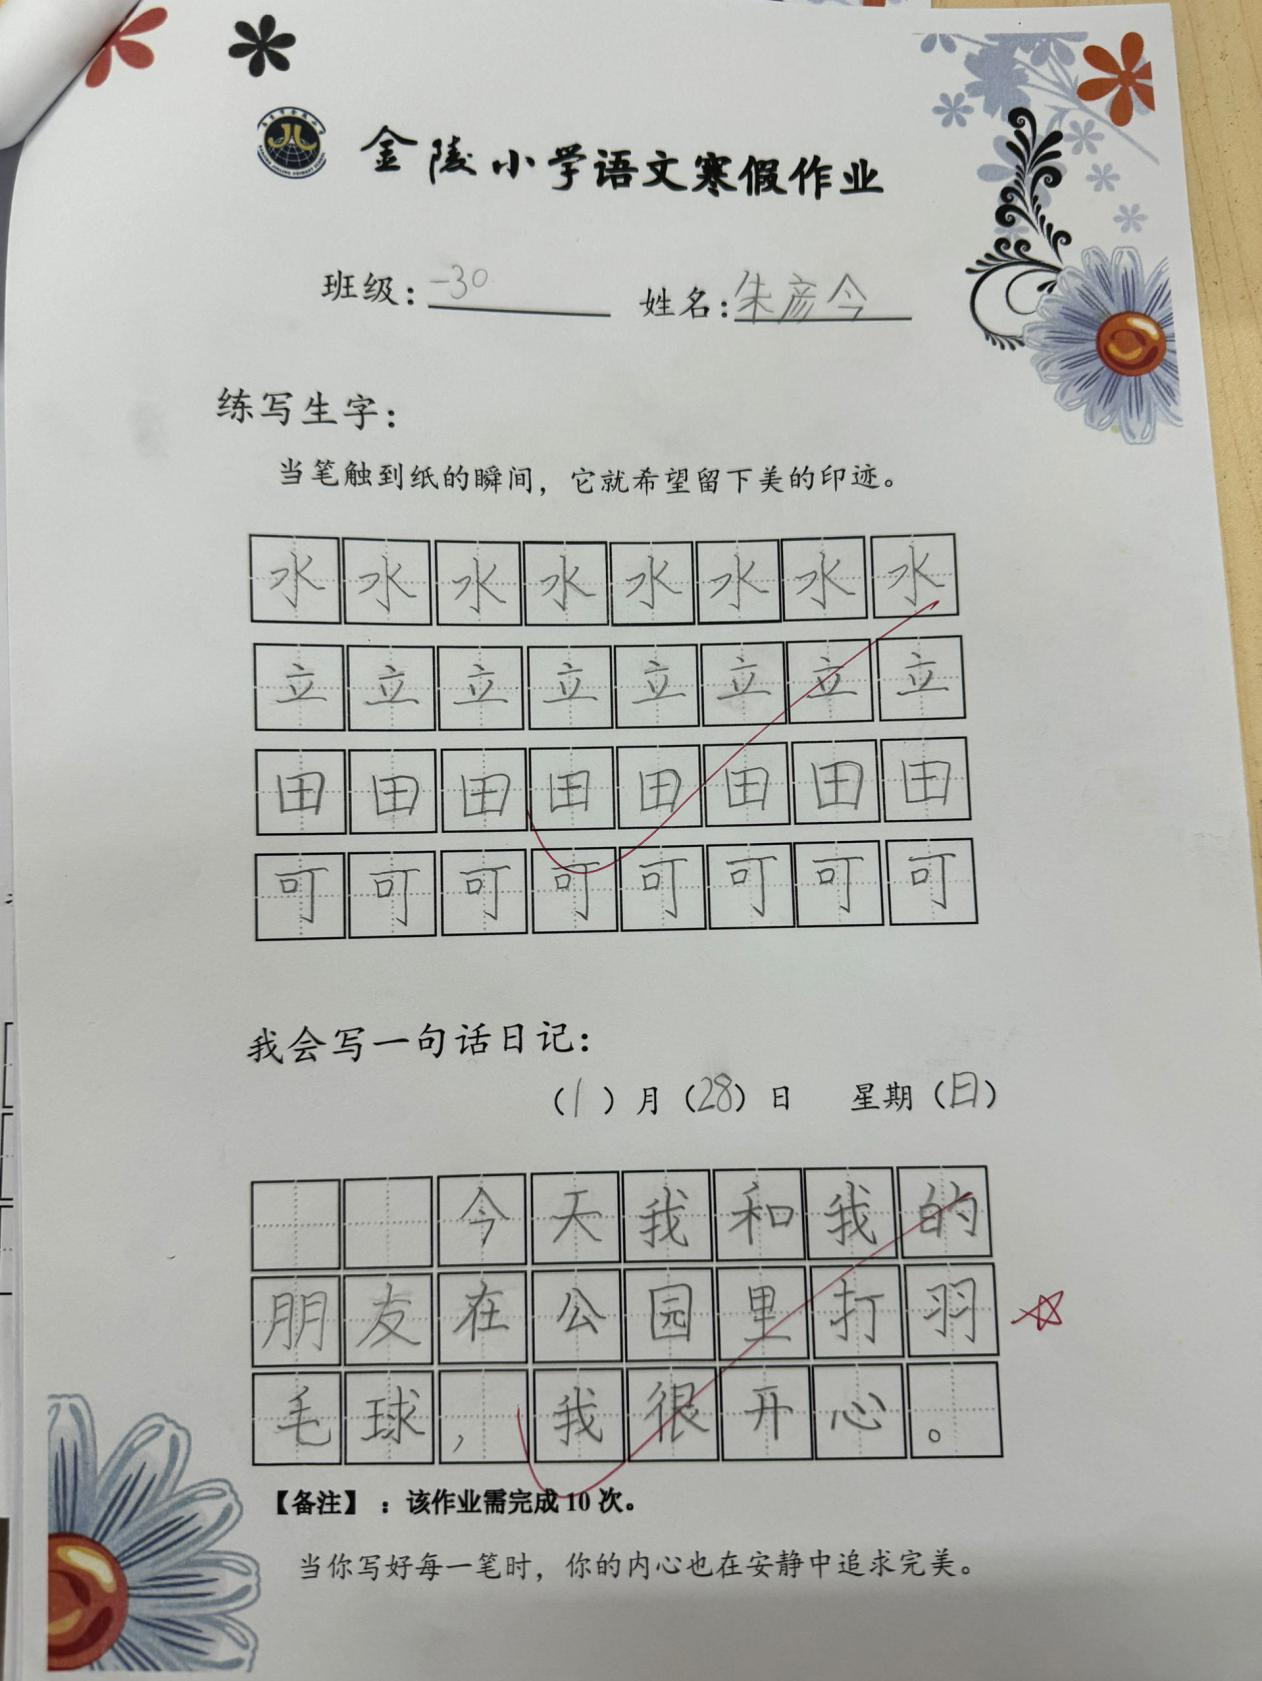 金陵小学语文寒假作业
班级：一30 姓名：朱彦今
练写生字：
当笔触到纸的瞬间，它就希望留下美的印迹。
水水水水水水水水
立立立立立立立立
田田田田田田田田
可可可可可可可可
我会写一句话日记：
（1）月（28）日 星期（日）
今天我和我的
朋友在公园里打羽
毛球，我很开心。
【备注】：该作业需完成10次。
当你写好每一笔时，你的内心也在安静中追求完美。